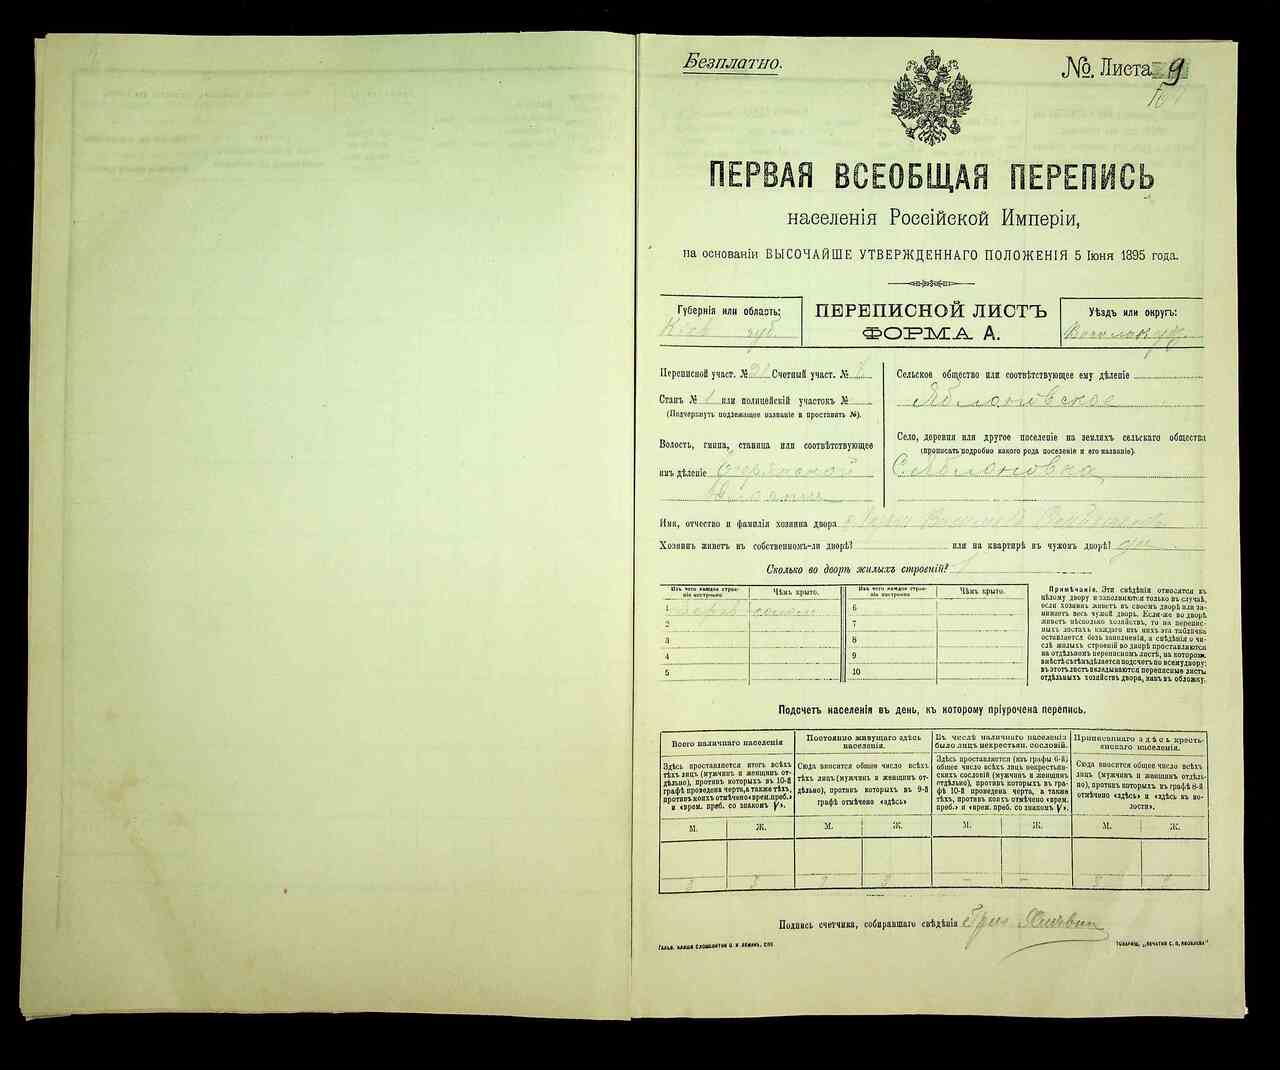 Безплатно.
№. Листа 9
ПЕРВАЯ ВСЕОБЩАЯ ПЕРЕПИСЬ
населенія Россійской Имперіи,
на основаніи ВЫСОЧАЙШЕ УТВЕРЖДЕННАГО ПОЛОЖЕНІЯ 5 Іюня 1895 года.
Губернія или область:
Кіев губ.
ПЕРЕПИСНОЙ ЛИСТЪ
ФОРМА А.
Уѣздъ или округъ:
Переписной участ. № Счетный участ. №
Станъ № 1 или полицейскій участокъ №
(Подчеркнуть подлежащее названіе и проставить №).
Волость, гмина, станица или соотвѣтствующее
имъ дѣленіе
Сельское общество или соотвѣтствующее ему дѣленіе
Яблоновское
Село, деревня или другое поселеніе на земляхъ сельскаго общества
(прописать подробно какого рода поселеніе и его названіе).
С. Яблоновка
Имя, отчество и фамилія хозяина двора
Хозяинъ живетъ въ собственномъ-ли дворѣ? или на квартирѣ въ чужомъ дворѣ?
Сколько во дворѣ жилыхъ строеній? 1
Изъ чего каждое строе-
ніе построено
Чѣмъ крыто.
Изъ чего каждое строе-
ніе построено
Чѣмъ крыто.
1
2
3
4
5
6
7
8
9
10
Примѣчаніе. Эти свѣдѣнія относятся къ
цѣлому двору и заполняются только въ случаѣ,
если хозяинъ живетъ въ своемъ дворѣ или за-
нимаетъ весь чужой дворъ. Если-же во дворѣ
живетъ нѣсколько хозяйствъ, то на перепис-
ныхъ листахъ каждаго изъ нихъ эта табличка
оставляется безъ заполненія, а свѣдѣнія о чи-
слѣ жилыхъ строеній во дворѣ проставляются
на отдѣльномъ переписномъ листѣ, на которомъ
вмѣстѣ съ тѣмъ дѣлается подсчетъ по всему двору;
въ этотъ листъ вкладываются переписные листы
отдѣльныхъ хозяйствъ двора, какъ въ обложку.
Подсчетъ населенія въ день, къ которому пріурочена перепись.
Всего наличнаго населенія
Здѣсь проставляется итогъ всѣхъ
тѣхъ лицъ (мужчинъ и женщинъ от-
дѣльно), противъ которыхъ въ 10-й
графѣ проведена черта, а также тѣхъ,
противъ коихъ отмѣчено «врем. преб.»
и «врем. преб. со знакомъ V».
Постоянно живущаго здѣсь
населенія.
Сюда вносится общее число всѣхъ
тѣхъ лицъ (мужчинъ и женщинъ от-
дѣльно), противъ которыхъ въ 9-й
графѣ отмѣчено «здѣсь»
Въ числѣ наличнаго населенія
было лицъ некрестьян. сословій.
Здѣсь проставляется (изъ графы 6-й)
общее число всѣхъ лицъ некрестьян-
скихъ сословій (мужчинъ и женщинъ
отдѣльно), противъ которыхъ въ гра-
фѣ 10-й проведена черта, а также
тѣхъ, противъ коихъ отмѣчено «врем.
преб.» и «врем. преб. со знакомъ V».
Приписаннаго здѣсь кресть-
янскаго населенія.
Сюда вносится общее число всѣхъ
лицъ (мужчинъ и женщинъ отдѣль-
но), противъ которыхъ въ графѣ 8-й
отмѣчено «здѣсь» и «здѣсь въ во-
лости».
М. Ж. М. Ж. М. Ж. М. Ж.
Подпись счетчика, собиравшаго свѣдѣнія